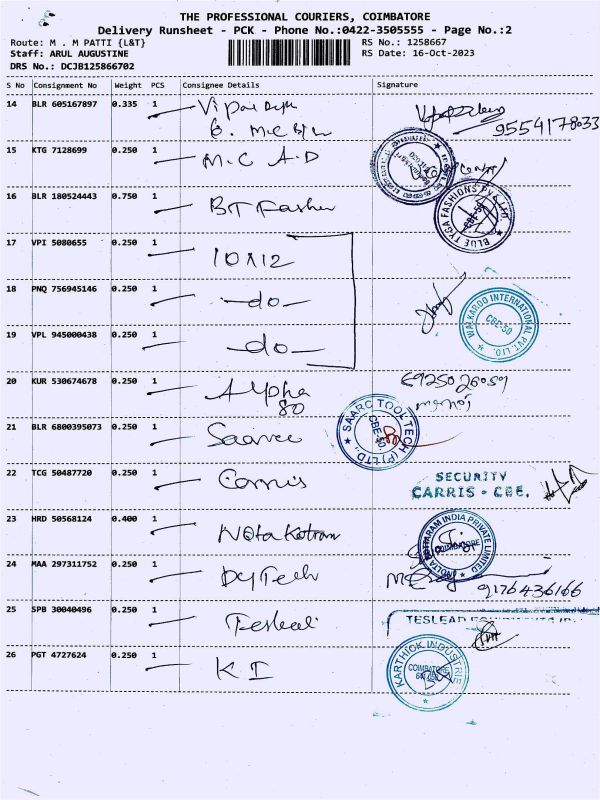 THE PROFESSIONAL COURIERS, COIMBATORE
Delivery Runsheet - PCK - Phone No.:0422-3505555 - Page No.:2
Route: M . M PATTI {L&T}
RS No.: 1258667
Staff: ARUL AUGUSTINE
RS Date: 16-Oct-2023
DRS No.: DCJB125866702
S No Consignment No Weight PCS Consignee Details Signature
14 BLR 605167897 0.335 1
9554178033
15 KTG 7128699 0.250 1 M.C A.D
16 BLR 180524443 0.750 1 BT
BLUE TYGA FASHIONS PVT. LTD. CBE-50
17 VPI 5080655 0.250 1 10A12
18 PNQ 756945146 0.250 1 -do-
WALKAROO INTERNATIONAL PVT. LTD. CBE-50
19 VPL 945000438 0.250 1 -do-
20 KUR 530674678 0.250 1 Alpha
80
21 BLR 6800395073 0.250 1
SAARC TOOL TECH (P) LTD., CBE-50
22 TCG 50487720 0.250 1 Carris
SECURITY
CARRIS - CBE.
23 HRD 50568124 0.400 1
INDIA PRIVATE LIMITED COIMBATORE
24 MAA 297311752 0.250 1
9176436166
25 SPB 30040496 0.250 1
TESLEAD
26 PGT 4727624 0.250 1 KI
KARTHICK INDUSTRIES COIMBATORE